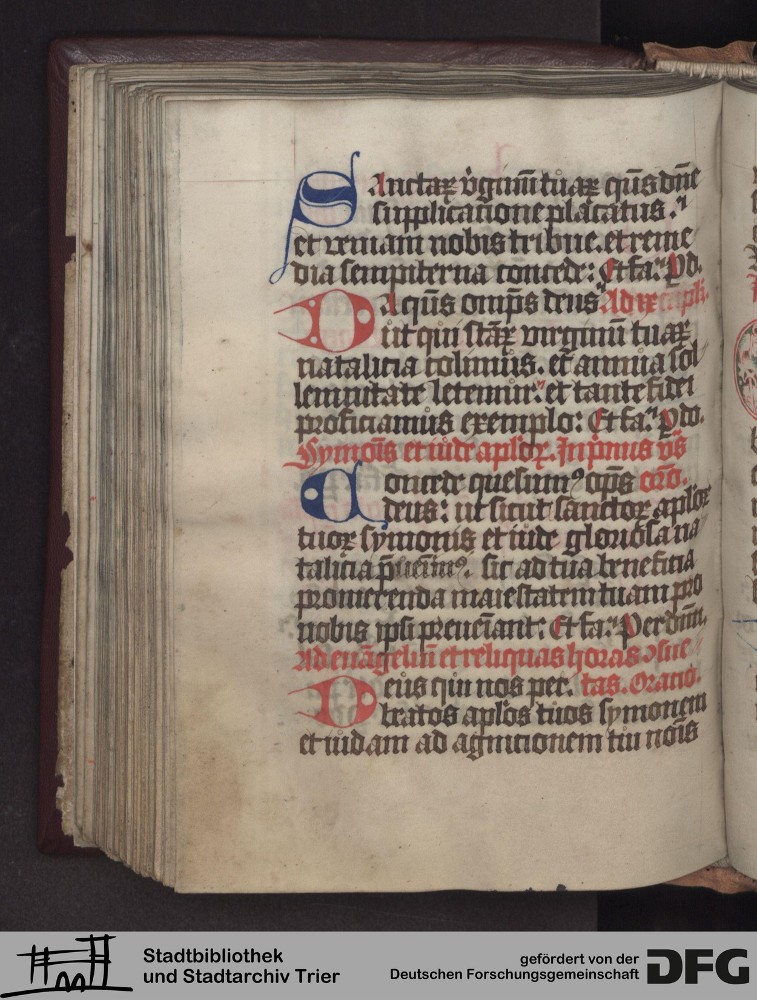 Sanctaꝝ v̓ginū tuaꝝ qūs dn̄e
supplicatione placatus.
et veniam nobis tribue. et reme
dia sempiterna concede: Et fa. P do.
Da q̄us omp̄s deus Ad vꝰ
ut qui sc̄aꝝ virginū tuaꝝ
natalicia colimus. et annua sol
lempnitate letemur: et tante fidei
proficiamus exemplo: Et fa. P do.
Symōis et iude aplōꝝ. In p̄mis vs̄
Concede quesumꝰ op̄s orō.
deus: ut sicut sanctoꝝ aplōꝝ
tuoꝝ symonis et iude gloriosa na
talicia p̄uenimꝰ. sic ad tua beneficia
promerenda maiestatem tuam pro
nobis ipsi preueniant: Et fa. Per dnm.
Ad euāgeliū et reliquas horas ↄsue
Deus qui nos per. tas. Oracio.
beatos aplōs tuos symonem
et iudam ad agnicionem tui nōis
Stadtbibliothek
und Stadtarchiv Trier
gefördert von der
Deutschen Forschungsgemeinschaft
DFG